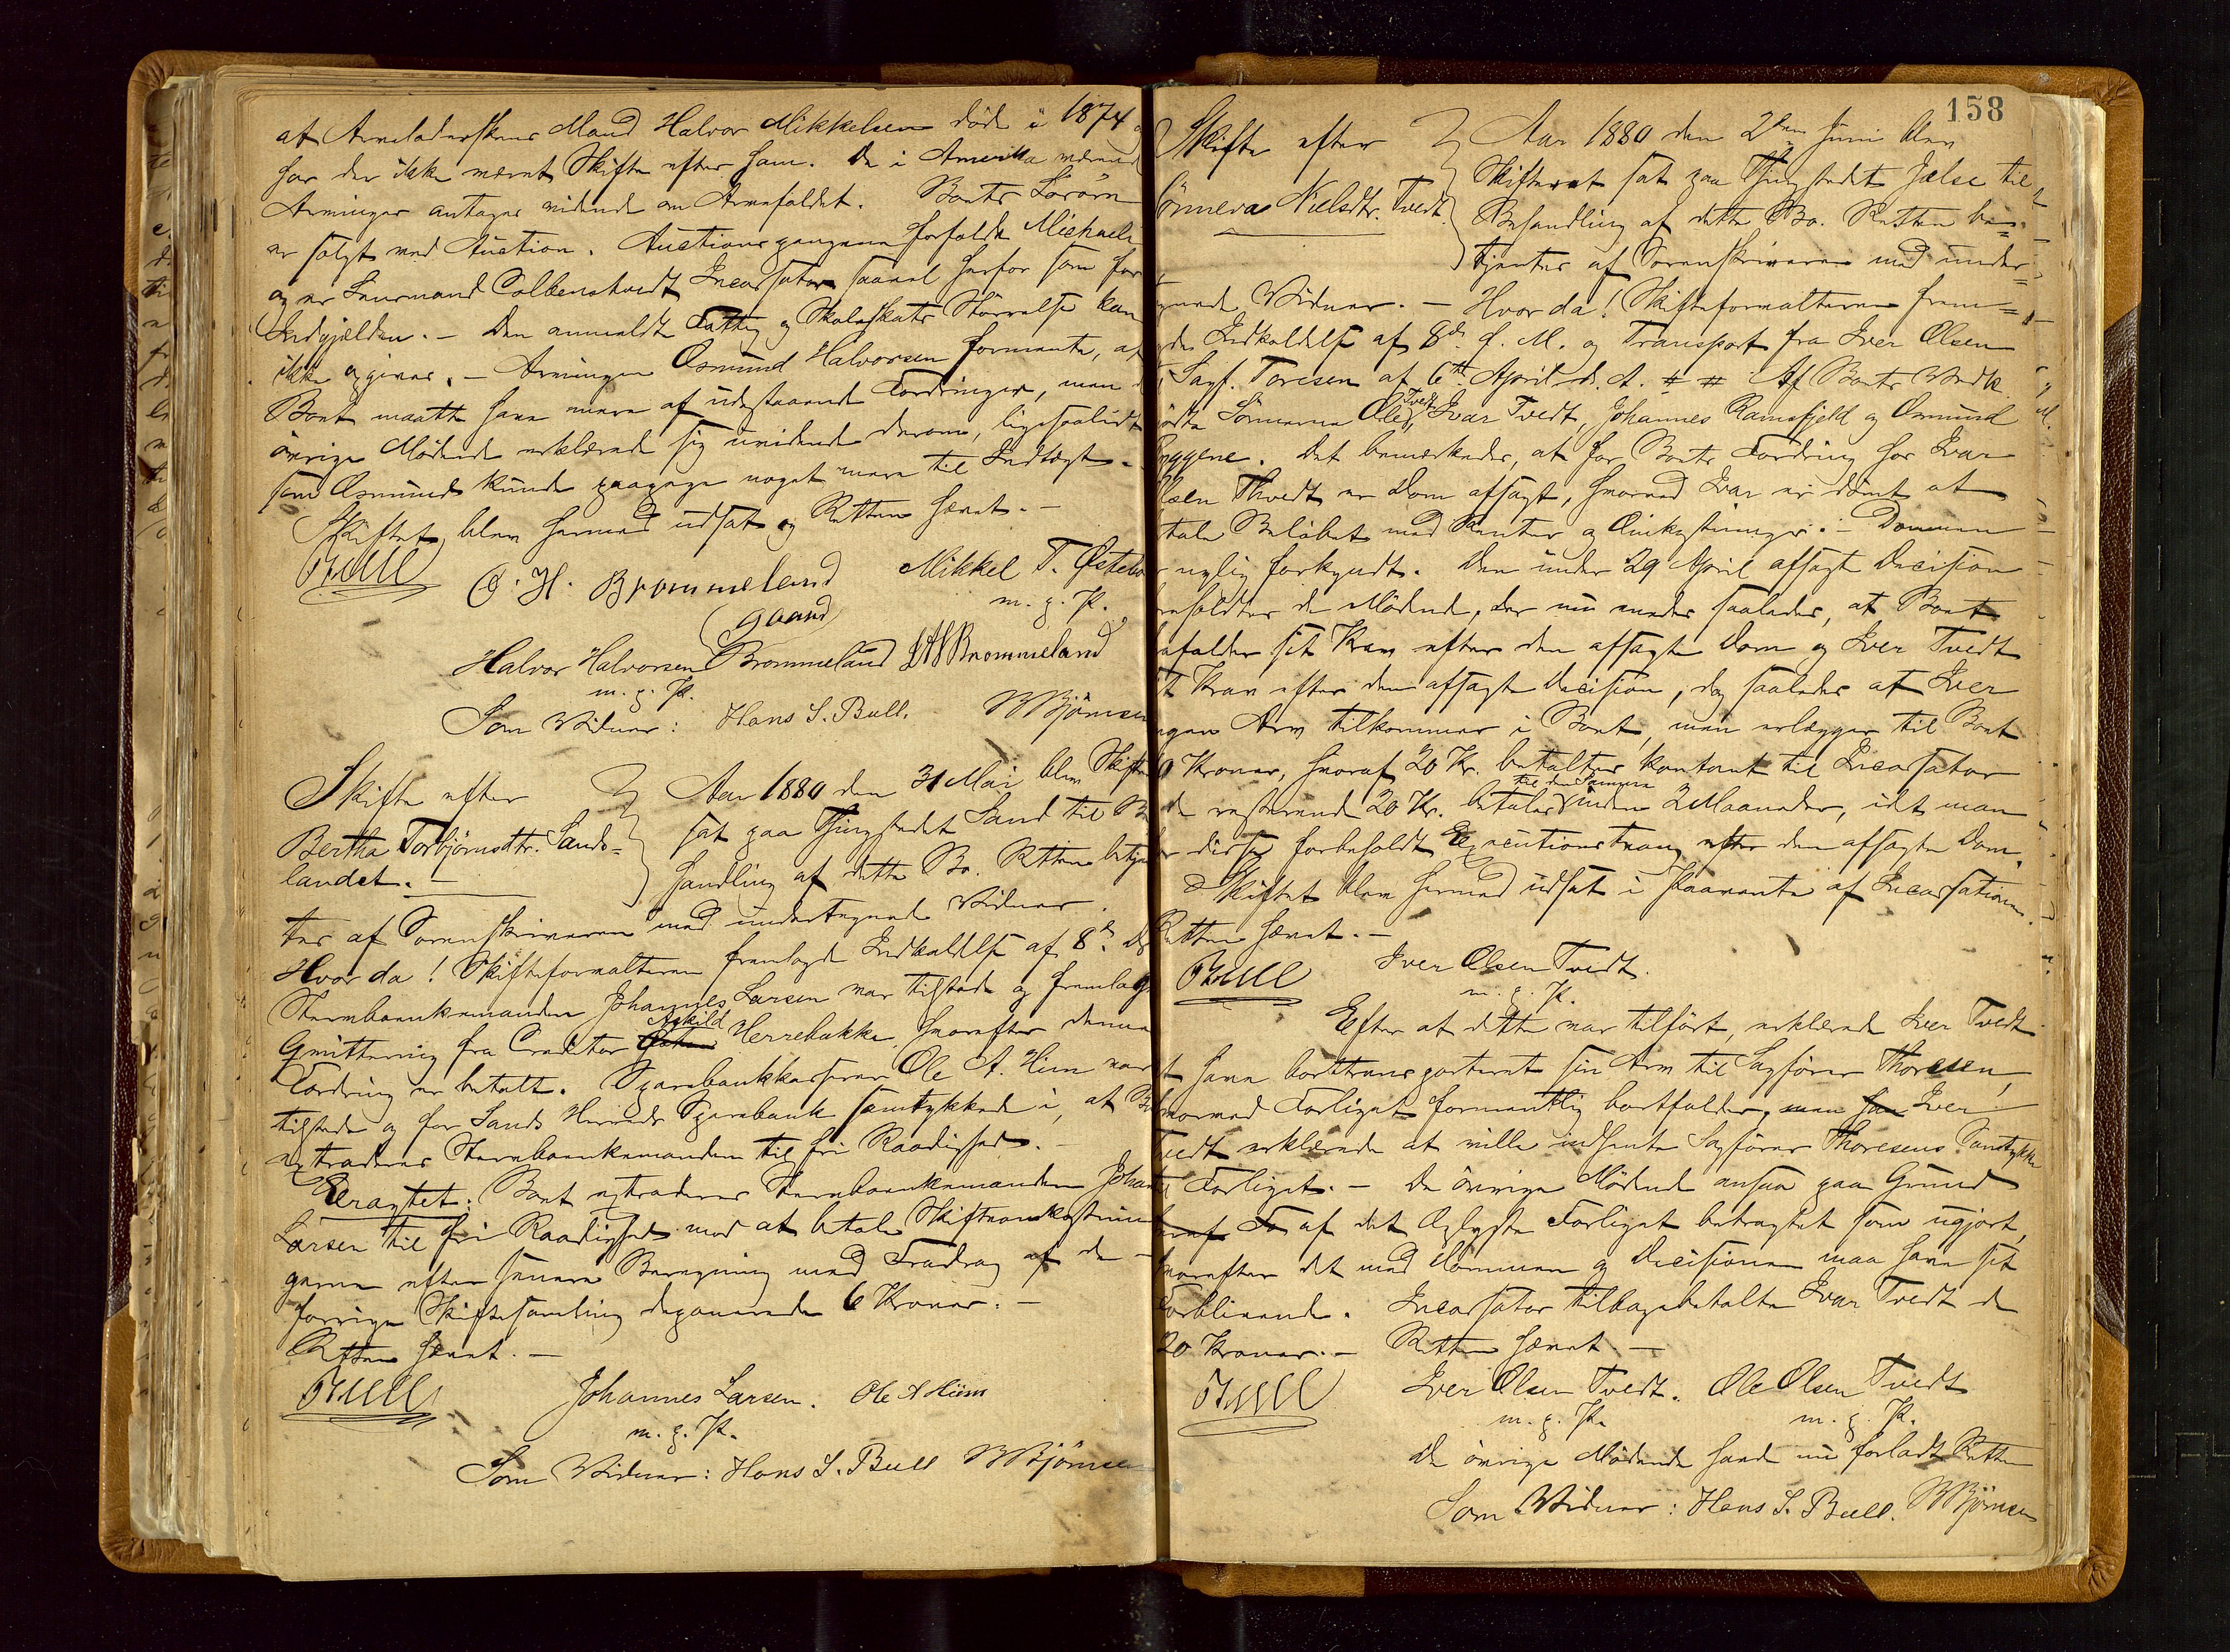 at Arveladerskens Mand Halvor Mikkelsen døde i 1874
har der ikke været Skifte efter ham. De i Amerika værende
Arvinger antages vidende om Arvefaldet. Boets Løsøre
er solgt ved Auction. Auctionspengene forfalde Michaeli
og er Lensmand Colbenstvedt Incassator saavel herfor som for
Indgjelden. – Den anmeldte Fattig og Skoleskats Størrelse kan
ikke opgives. – Arvingen Osmund Halvorsen formente, at
Boet maatte have mere af udestaaende Fordringer, men
øvrige Mødende erklærede sig uvidende derom, ligesaalidt
som Osmund kunde paapege noget mere til Indtægt. –
Skiftet blev hermed udsat og Retten hævet. –
Bull O. H. Brommeland Mikkel T. Østebø
m. p. P.
(gaard)
Halvor Halvorsen Brommeland Brommeland
m. p. P.
Som Vidner: Hans S. Bull. Bjørnsen
Skifte efter
Bertha Torbjørnsdtr. Sands=
landet. –
Aar 1880 den 31 Mai blev Skifte
sat paa Thingstedet Sand til Be
handling af dette Bo. Retten betjen
tes af Sorenskriveren med undertegnede Vidner.
Hvor da! Skifteforvalteren fremlagde Indkaldelse af 8de
Stervboenkemanden Johannes Larsen var tilstede og fremlagde
Qvittering fra Creditor Askild Herrebakke, hvorefter denne
Fordring er betalt. Sparebankkasserer Ole A. Hiim var
tilstede og for Sands Herreds Sparebank samtykkede i, at Bo
extraderes Stervboenkemanden til fri Raadighed. –
Eragtet: Boet extraderes Stervboenkemanden Johannes
Larsen til fri Raadighed mod at betale Skifteomkostnin
gerne efter senere Beregning med Fradrag af de –
forrige Skiftesamling deponerede 6 Kroner. –
Retten hævet. –
Bull Johannes Larsen. Ole A Hiim
m. p. P.
Som Vidner: Hans S. Bull Bjørnsen
158
Skifte efter
Sønneva Nielsdtr. Tvedt
Aar 1880 den 2den Juni blev
Skifteret sat paa Thingstedet Jælse til
Behandling af dette Bo. Retten be=
tjentes af Sorenskriveren med under=
tegnede Vidner. – Hvor da! Skifteforvalteren frem=
Indkaldelse af 8de f. M. og Transport fra Iver Olsen
Sagf. Toresen af 6te April d. A. # # Af Boets Vedk.
mødte Sønnerne Ole Tvedt, Ivar Tvedt, Johannes Ramsfjeld og Osmund
Det bemærkedes, at for Boets Fordring hos Ivar
Olsen Thvedt er Dom afsagt, hvorved Ivar er dømt at
tale Beløbet med Renter og Omkostninger. – Dommen
nylig forkyndt. Den under 29 April afsagte Decision
de Mødende, der nu enedes saaledes, at Boet
frafalder sit Krav efter den afsagte Dom og Iver Tvedt
sit Krav efter den afsagte Decision, dog saaledes at Iver
ingen Arv tilkommer i Boet, men erlægger til Boet
Kroner, hvoraf 20 Kr. betaltes kontant til Incassator
de resterende 20 Kr. betales til den Samme inden 2 Maaneder, idet man
for disse forbeholdt Executionstvang efter den afsagte Dom.
Skiftet blev hermed udsat i Paavente af Incassationen.
Retten hævet. –
Bull Iver Olsen Tvedt.
m. p. P.
Efter at dette var tilført, erklærede Iver Tvedt
at have borttransporteret sin Arv til Sagfører Thoresen,
hvorved Forliget formentlig bortfalder, men Iver
Tvedt erklærede at ville indhente Sagfører Thoresens Samtykke
til Forliget. – De øvrige Mødende ansaa paa Grund
af det Oplyste Forliget betragtet som ugjort,
hvorefter det med Dommen og Decisionen maa have sit
Forblivende. Incassator tilbagebetalte Ivar Tvedt de
20 Kroner. – Retten hævet. –
Bull Iver Olsen Tvedt. Ole Olsen Tvedt
m. p. P. m. p. P.
De øvrige Mødende havde nu forladt Retten
Som Vidner: Hans S. Bull. Bjørnsen